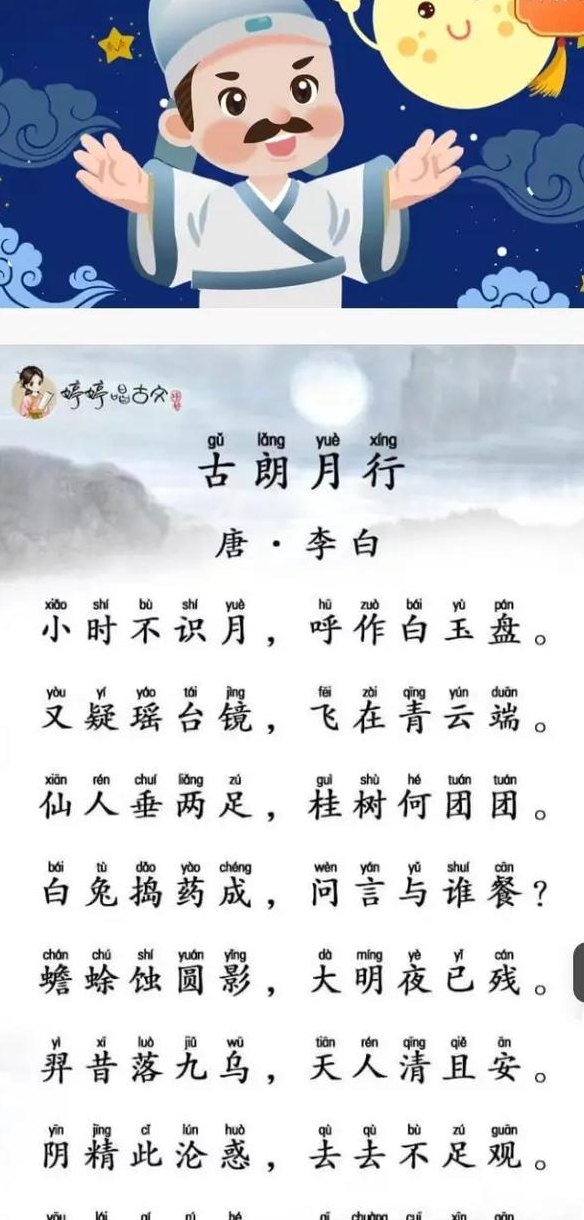 婷婷唱古文
gǔ lǎng yuè xíng
古朗月行
唐·李白
xiǎo shí bù shí yuè hū zuò bái yù pán
小时不识月，呼作白玉盘。
yòu yí yáo tái jìng fēi zài qīng yún duān
又疑瑶台镜，飞在青云端。
xiān rén chuí liǎng zú guì shù hé tuán tuán
仙人垂两足，桂树何团团。
bái tù dǎo yào chéng wèn yán yǔ shuí cān
白兔捣药成，问言与谁餐？
chán chú shí yuán yǐng dà míng yè yǐ cán
蟾蜍蚀圆影，大明夜已残。
yì xī luò jiǔ wū tiān rén qīng qiě ān
羿昔落九乌，天人清且安。
yīn jīng cǐ lún huò qù qù bù zú guān
阴精此沦惑，去去不足观。